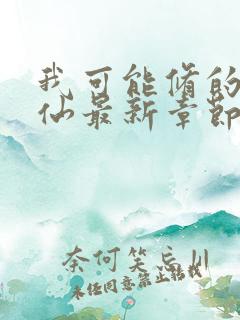 我可能修的
仙最新章节
奈何笑忘川
未经同意禁止转载